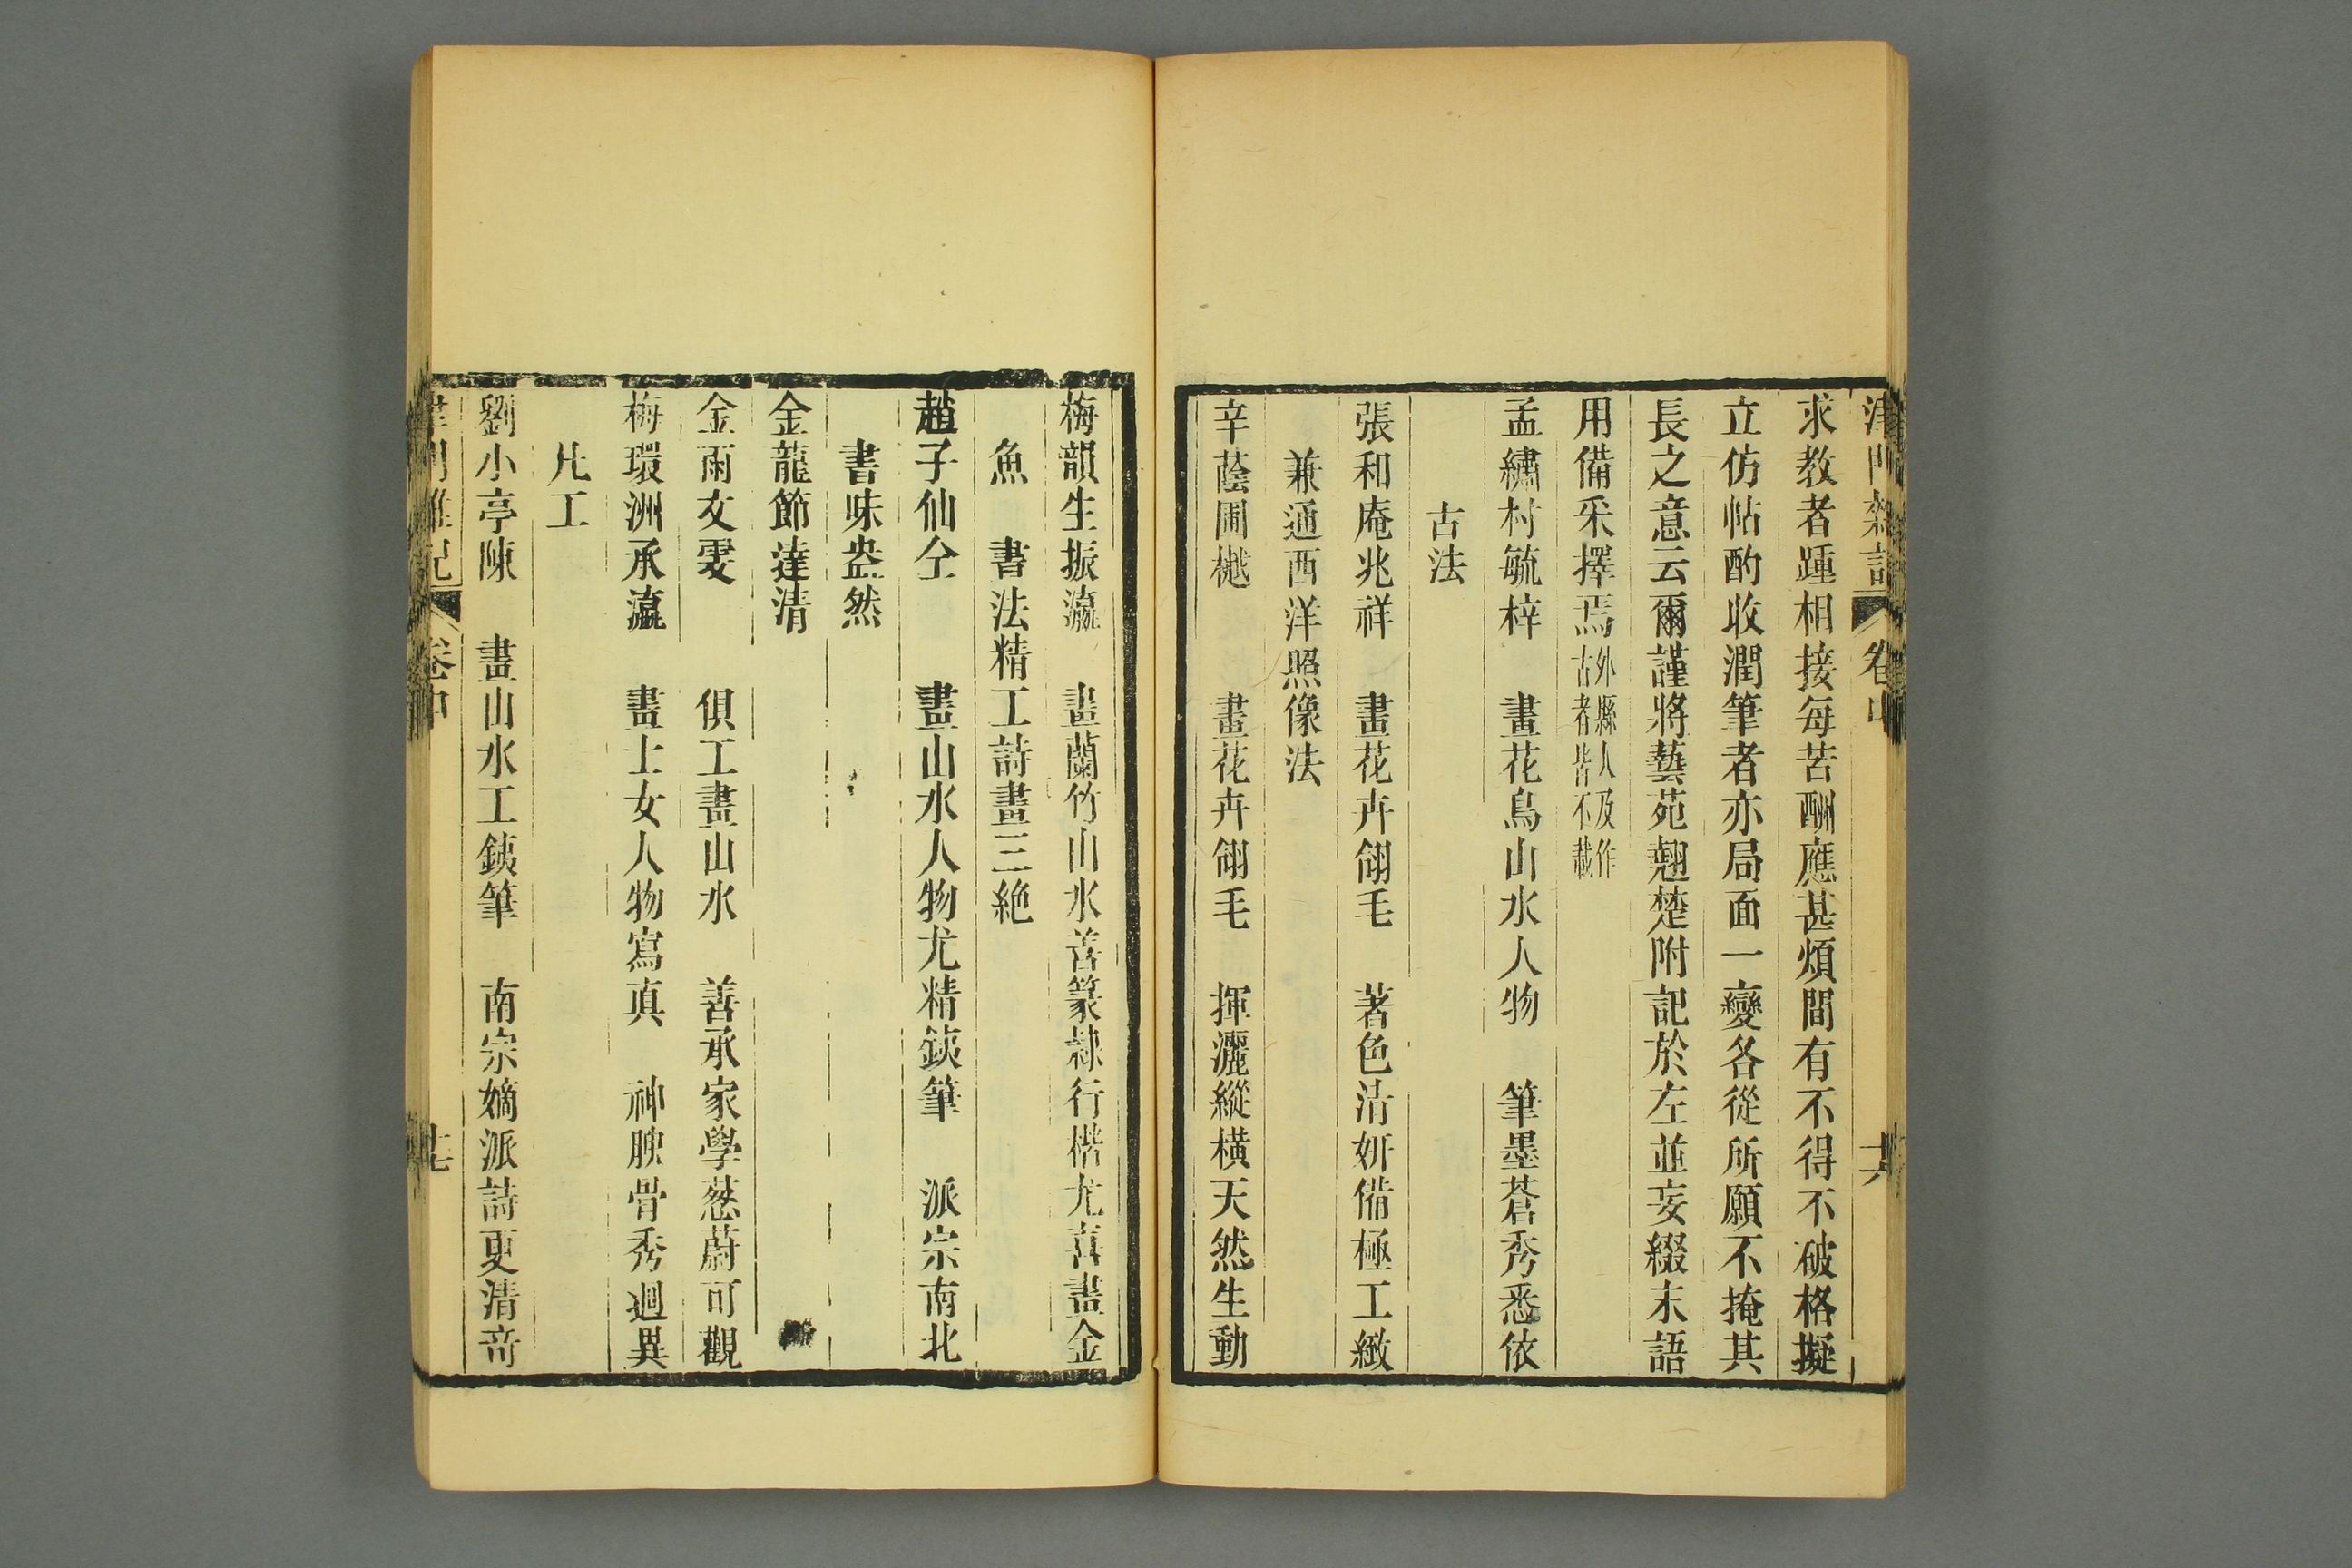 津門雜記 卷中 十六
求教者踵相接每苦酬應甚煩間有不得不破格擬
立仿帖酌收潤筆者亦局面一變各從所願不掩其
長之意云爾謹將藝苑翹楚附記於左並妄綴末語
用備采擇焉外縣人及作古者皆不載
孟繡村毓梓 畫花鳥山水人物 筆墨蒼秀悉依
古法
張和庵兆祥 畫花卉翎毛 著色清妍備極工緻
兼通西洋照像法
辛蔭圃樾 畫花卉翎毛 揮灑縱橫天然生動
梅韻生振瀛 畫蘭竹山水善篆隸行楷尤喜畫金
魚 書法精工詩畫三絶
趙子仙仝 畫山水人物尤精鐵筆 派宗南北
書味盎然
金龍節達清
金雨女雯 俱工畫山水 善承家學葱蔚可觀
梅環洲承瀛 畫士女人物寫真 神腴骨秀迥異
凡工
劉小亭陳 畫山水工鐵筆 南宗嫡派詩更清奇
津門雜記 卷中 十七